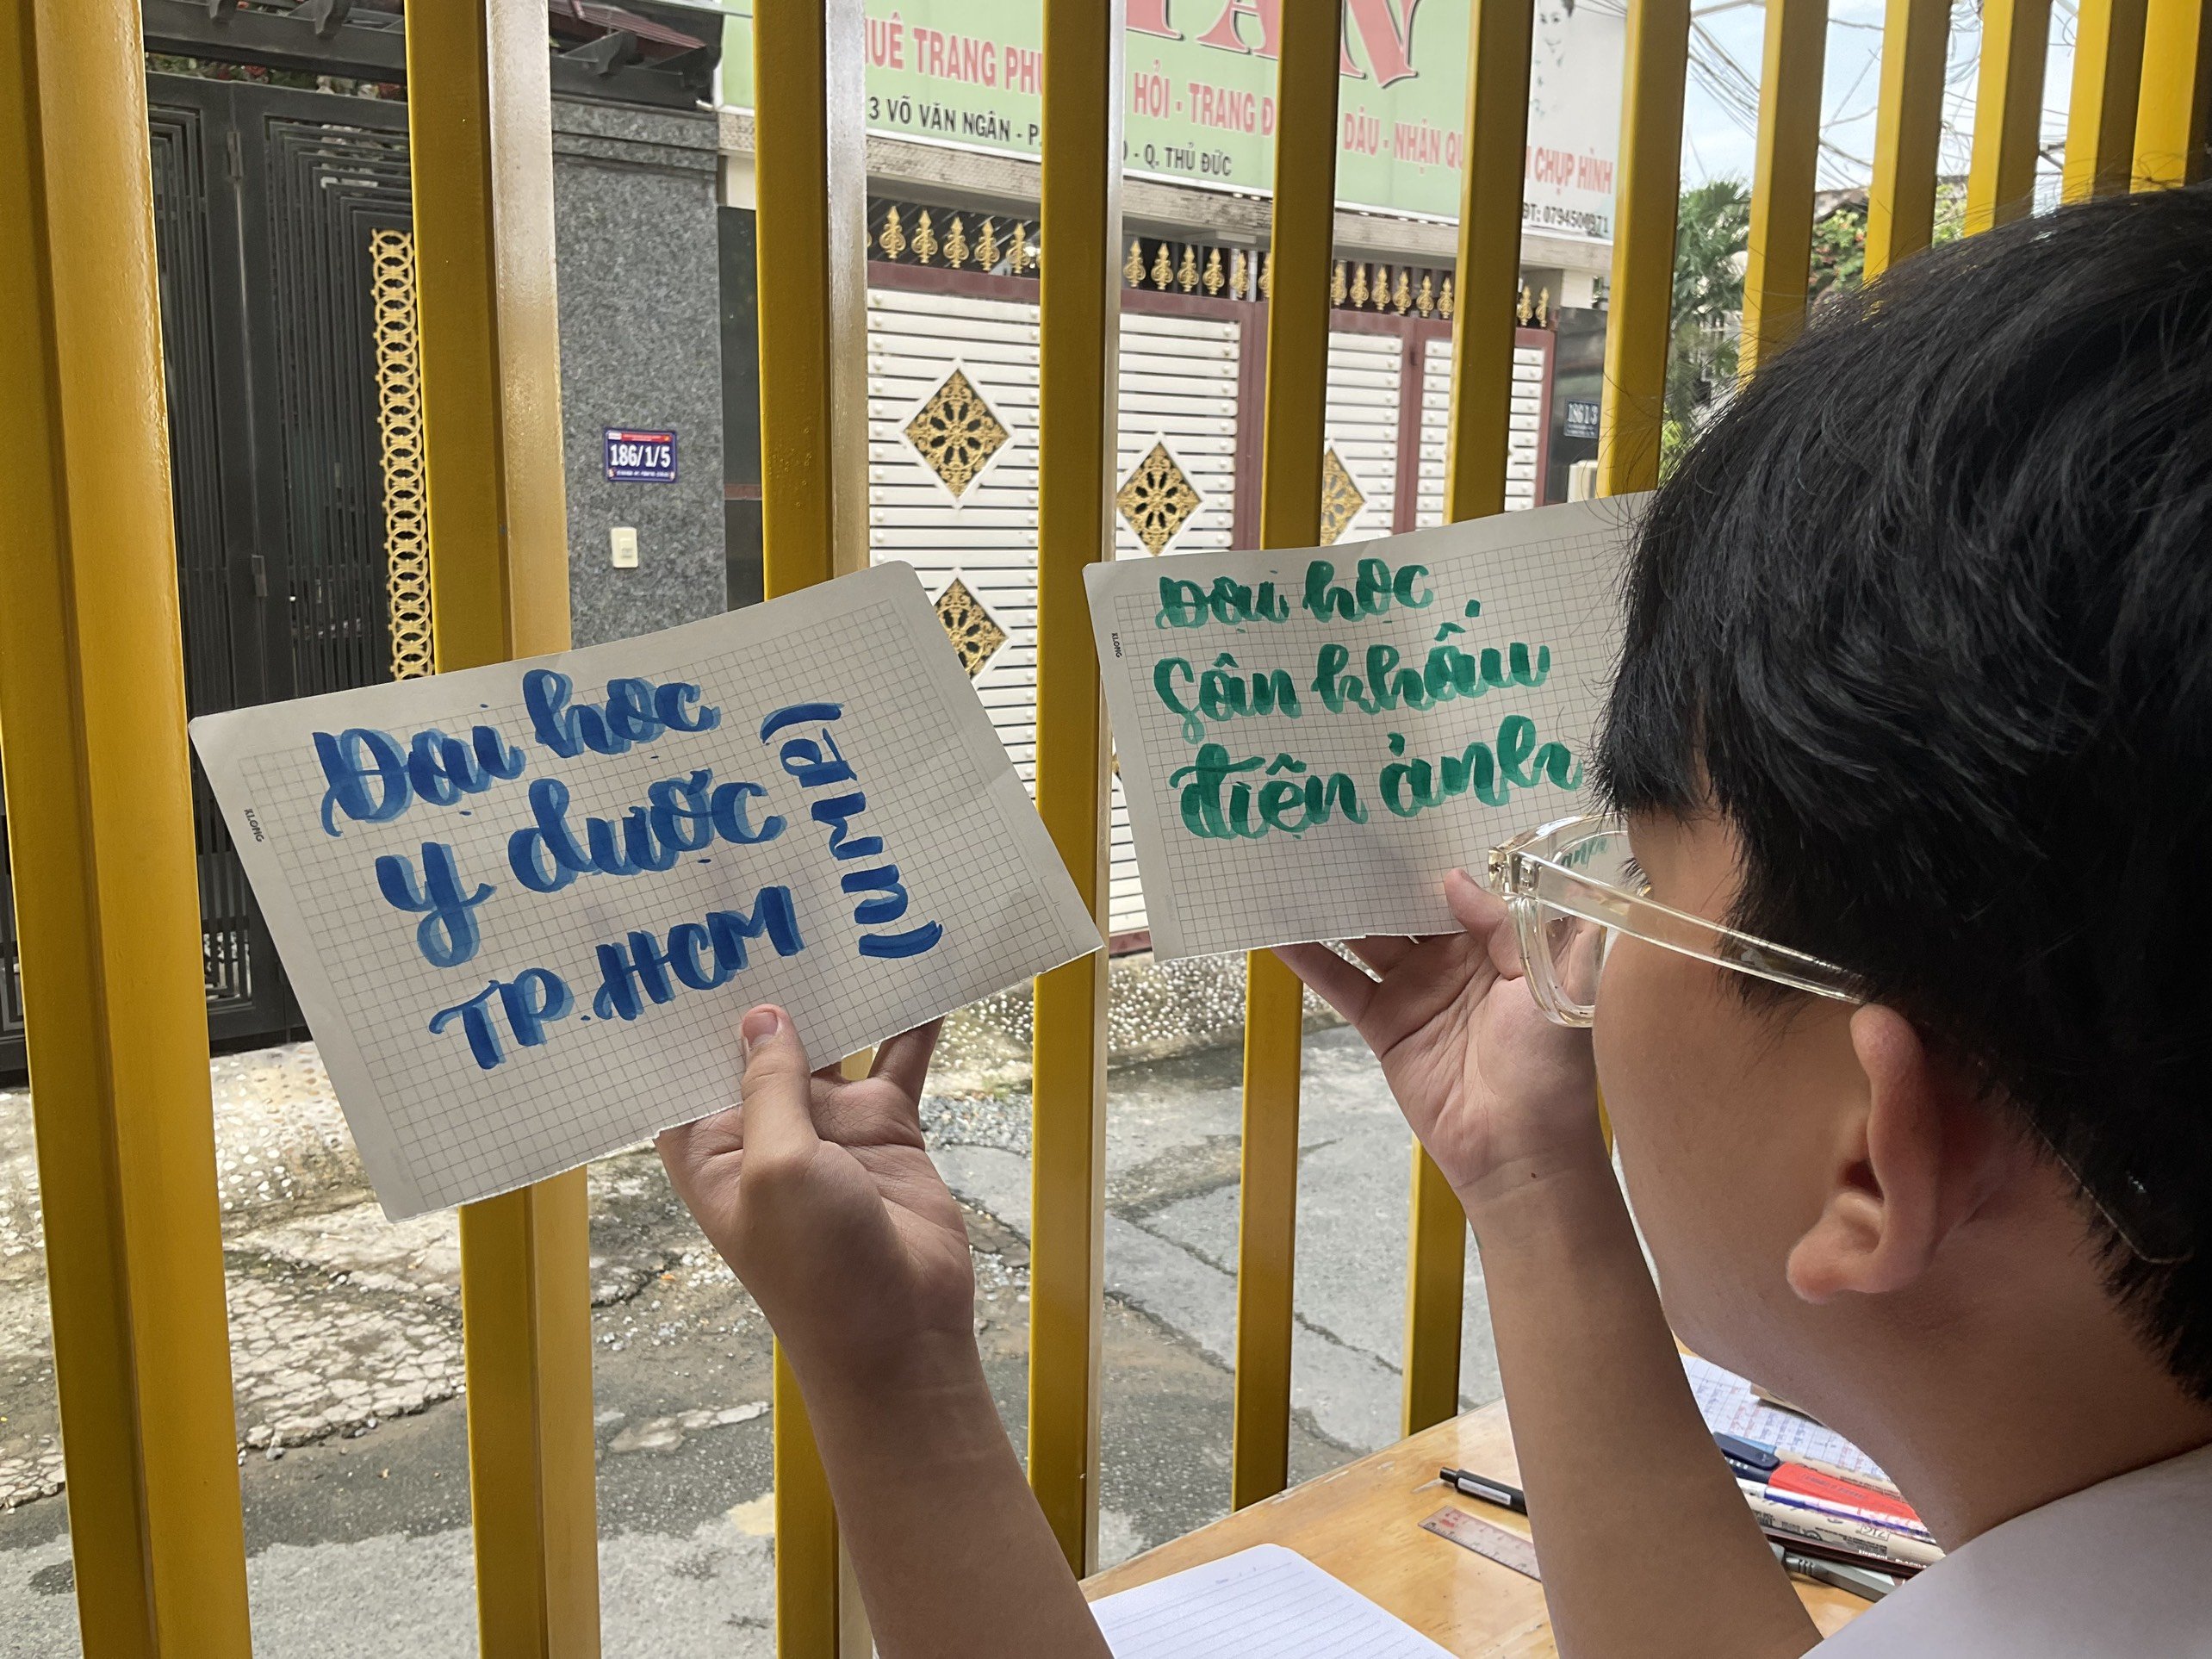 TÂN
HUÊ TRANG PHỤ HỎI - TRANG DÂU - NHẬN CHỤP HÌNH
3 VÕ VĂN NGÂN - P. - Q. THỦ ĐỨC
ĐT: 0794500971
186/1/5
186 1 3
KLONG
Đại học
y dược
TP.HCM
(UMP)
KLONG
Đại học
Sân khấu
điện ảnh